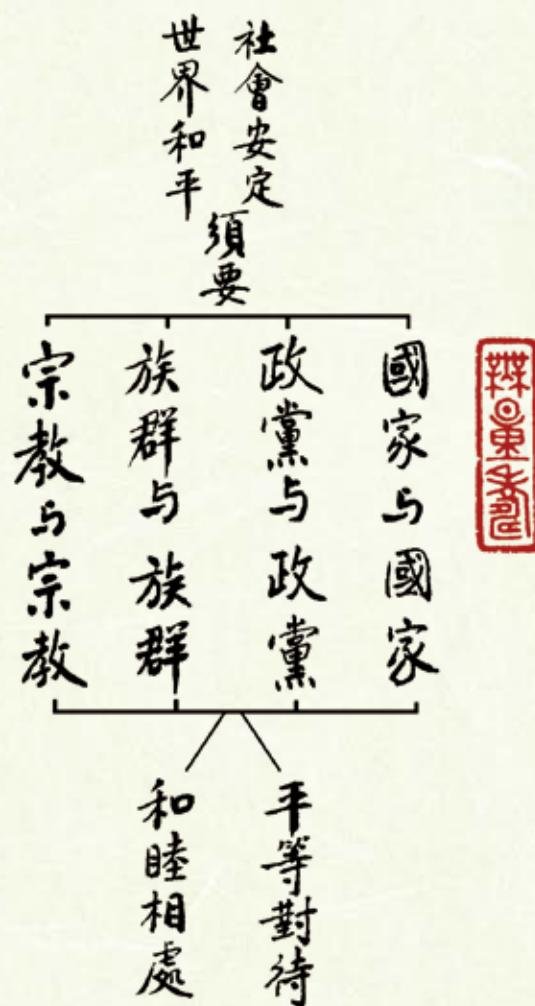 社會安定
世界和平
須要
國家与國家
政黨与政黨
族群与族群
宗教与宗教
平等對待
和睦相處
無量壽